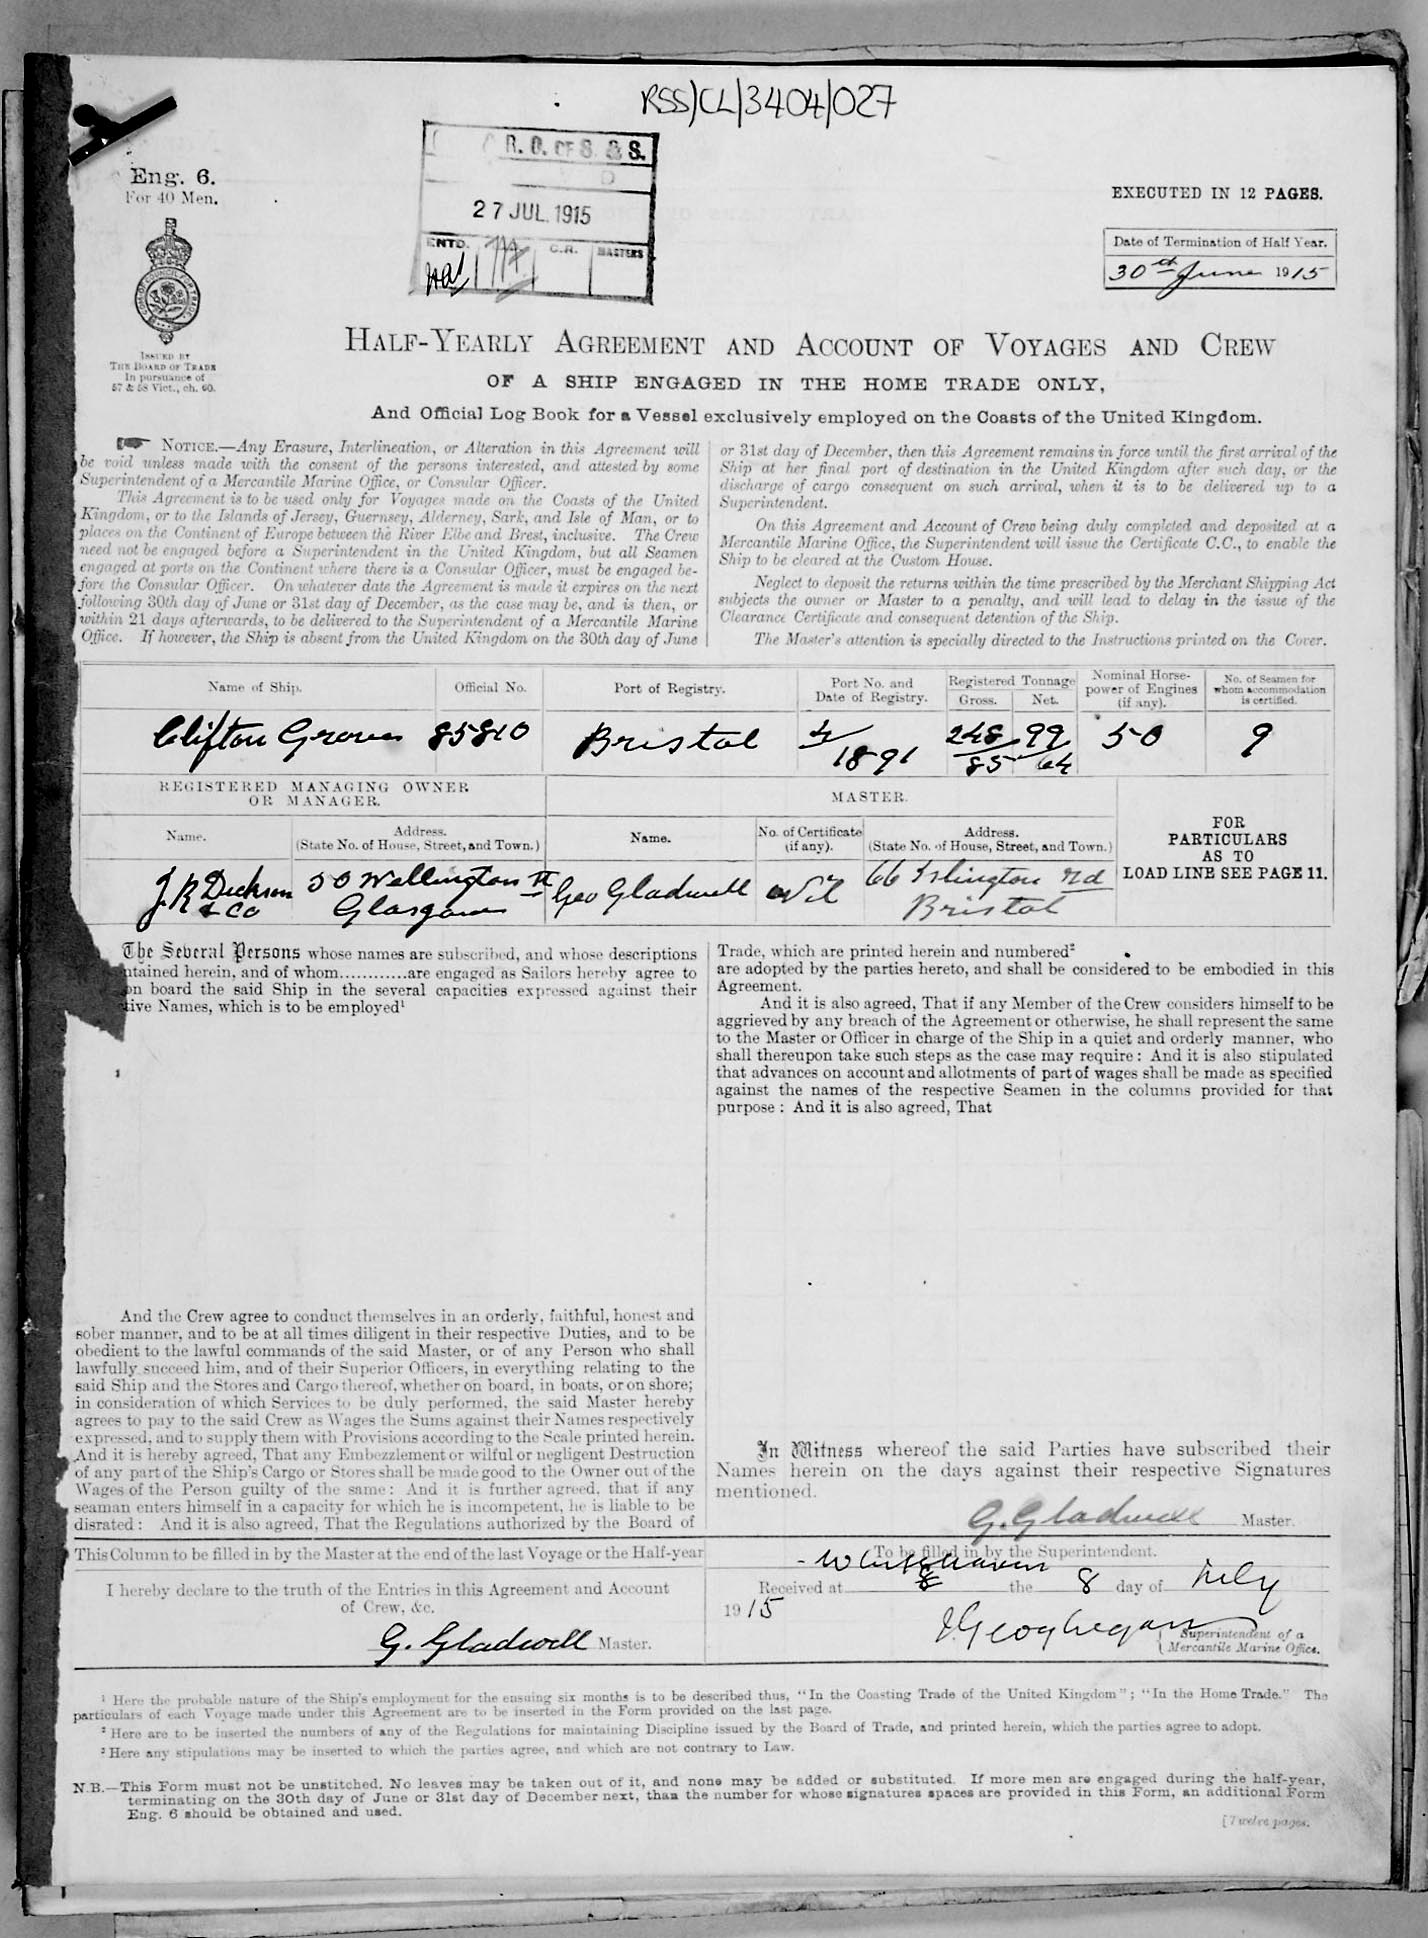 RSS/CL/3404/027
R. O. OF S. & S.
D
27 JUL. 1915
ENTD. C.R. MASTERS
Eng. 6.
For 40 Men.
ISSUED BY
THE BOARD OF TRADE
In pursuance of
57 & 58 Vict., ch. 60.
EXECUTED IN 12 PAGES.
Date of Termination of Half Year.
30th June 1915
HALF-YEARLY AGREEMENT AND ACCOUNT OF VOYAGES AND CREW
OF A SHIP ENGAGED IN THE HOME TRADE ONLY,
And Official Log Book for a Vessel exclusively employed on the Coasts of the United Kingdom.
NOTICE.—Any Erasure, Interlineation, or Alteration in this Agreement will
be void unless made with the consent of the persons interested, and attested by some
Superintendent of a Mercantile Marine Office, or Consular Officer.
This Agreement is to be used only for Voyages made on the Coasts of the United
Kingdom, or to the Islands of Jersey, Guernsey, Alderney, Sark, and Isle of Man, or to
places on the Continent of Europe between the River Elbe and Brest, inclusive. The Crew
need not be engaged before a Superintendent in the United Kingdom, but all Seamen
engaged at ports on the Continent where there is a Consular Officer, must be engaged be-
fore the Consular Officer. On whatever date the Agreement is made it expires on the next
following 30th day of June or 31st day of December, as the case may be, and is then, or
within 21 days afterwards, to be delivered to the Superintendent of a Mercantile Marine
Office. If however, the Ship is absent from the United Kingdom on the 30th day of June
or 31st day of December, then this Agreement remains in force until the first arrival of the
Ship at her final port of destination in the United Kingdom after such day, or the
discharge of cargo consequent on such arrival, when it is to be delivered up to a
Superintendent.
On this Agreement and Account of Crew being duly completed and deposited at a
Mercantile Marine Office, the Superintendent will issue the Certificate C.C., to enable the
Ship to be cleared at the Custom House.
Neglect to deposit the returns within the time prescribed by the Merchant Shipping Act
subjects the owner or Master to a penalty, and will lead to delay in the issue of the
Clearance Certificate and consequent detention of the Ship.
The Master's attention is specially directed to the Instructions printed on the Cover.
Name of Ship. Official No. Port of Registry. Port No. and Date of Registry. Registered Tonnage Gross. Net. Nominal Horse-power of Engines (if any). No. of Seamen for whom accommodation is certified.
Clifton Grove 85810 Bristol 4/1891 248/85 99/64 50 9
REGISTERED MANAGING OWNER
OR MANAGER.
MASTER.
Name. Address. (State No. of House, Street, and Town.) Name. No. of Certificate (if any). Address. (State No. of House, Street, and Town.)
FOR
PARTICULARS
AS TO
LOAD LINE SEE PAGE 11.
J. R Dickson 50 Wellington St Geo Gladwell Nil 66 Islington Rd
& Co Glasgow Bristol
The Several Persons whose names are subscribed, and whose descriptions
ntained herein, and of whom............are engaged as Sailors hereby agree to
on board the said Ship in the several capacities expressed against their
tive Names, which is to be employed¹
And the Crew agree to conduct themselves in an orderly, faithful, honest and
sober manner, and to be at all times diligent in their respective Duties, and to be
obedient to the lawful commands of the said Master, or of any Person who shall
lawfully succeed him, and of their Superior Officers, in everything relating to the
said Ship and the Stores and Cargo thereof, whether on board, in boats, or on shore;
in consideration of which Services to be duly performed, the said Master hereby
agrees to pay to the said Crew as Wages the Sums against their Names respectively
expressed, and to supply them with Provisions according to the Scale printed herein.
And it is hereby agreed, That any Embezzlement or wilful or negligent Destruction
of any part of the Ship's Cargo or Stores shall be made good to the Owner out of the
Wages of the Person guilty of the same: And it is further agreed, that if any
seaman enters himself in a capacity for which he is incompetent, he is liable to be
disrated: And it is also agreed, That the Regulations authorized by the Board of
Trade, which are printed herein and numbered²
are adopted by the parties hereto, and shall be considered to be embodied in this
Agreement.
And it is also agreed, That if any Member of the Crew considers himself to be
aggrieved by any breach of the Agreement or otherwise, he shall represent the same
to the Master or Officer in charge of the Ship in a quiet and orderly manner, who
shall thereupon take such steps as the case may require: And it is also stipulated
that advances on account and allotments of part of wages shall be made as specified
against the names of the respective Seamen in the columns provided for that
purpose: And it is also agreed, That
In Witness whereof the said Parties have subscribed their
Names herein on the days against their respective Signatures
mentioned.
G. Gladwell Master.
This Column to be filled in by the Master at the end of the last Voyage or the Half-year
I hereby declare to the truth of the Entries in this Agreement and Account
of Crew, &c.
G. Gladwell Master.
To be filled in by the Superintendent.
Received at Whitehaven the 8 day of July
1915
J Geoghegan
Superintendent of a
Mercantile Marine Office.
¹ Here the probable nature of the Ship's employment for the ensuing six months is to be described thus, "In the Coasting Trade of the United Kingdom"; "In the Home Trade." The
particulars of each Voyage made under this Agreement are to be inserted in the Form provided on the last page.
² Here are to be inserted the numbers of any of the Regulations for maintaining Discipline issued by the Board of Trade, and printed herein, which the parties agree to adopt.
³ Here any stipulations may be inserted to which the parties agree, and which are not contrary to Law.
N.B.—This Form must not be unstitched. No leaves may be taken out of it, and none may be added or substituted. If more men are engaged during the half-year,
terminating on the 30th day of June or 31st day of December next, than the number for whose signatures spaces are provided in this Form, an additional Form
Eng. 6 should be obtained and used.
[Twelve pages.